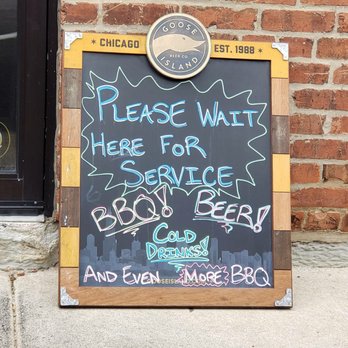 GOOSE
ISLAND
BEER CO.
CHICAGO EST. 1988
PLEASE WAIT
HERE FOR
SERVICE
BBQ! BEER!
COLD
DRINKS!
AND EVEN MORE BBQ